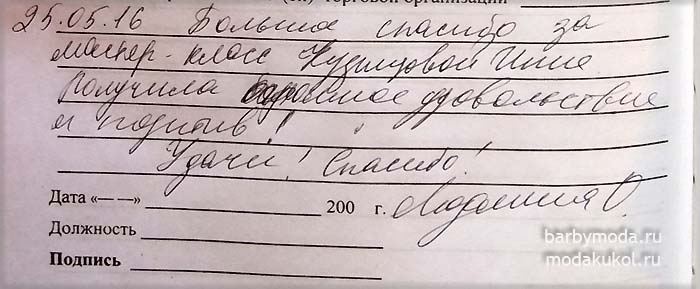 (ей) торговой организации
25.05.16 Большое спасибо за
мастер-класс Кузнецовой Инне
Получила огромное удовольствие
и подъём!
Удачи! Спасибо!
Дата «— —» 200 г. Людмила О.
Должность
Подпись
barbymoda.ru
modakukol.ru